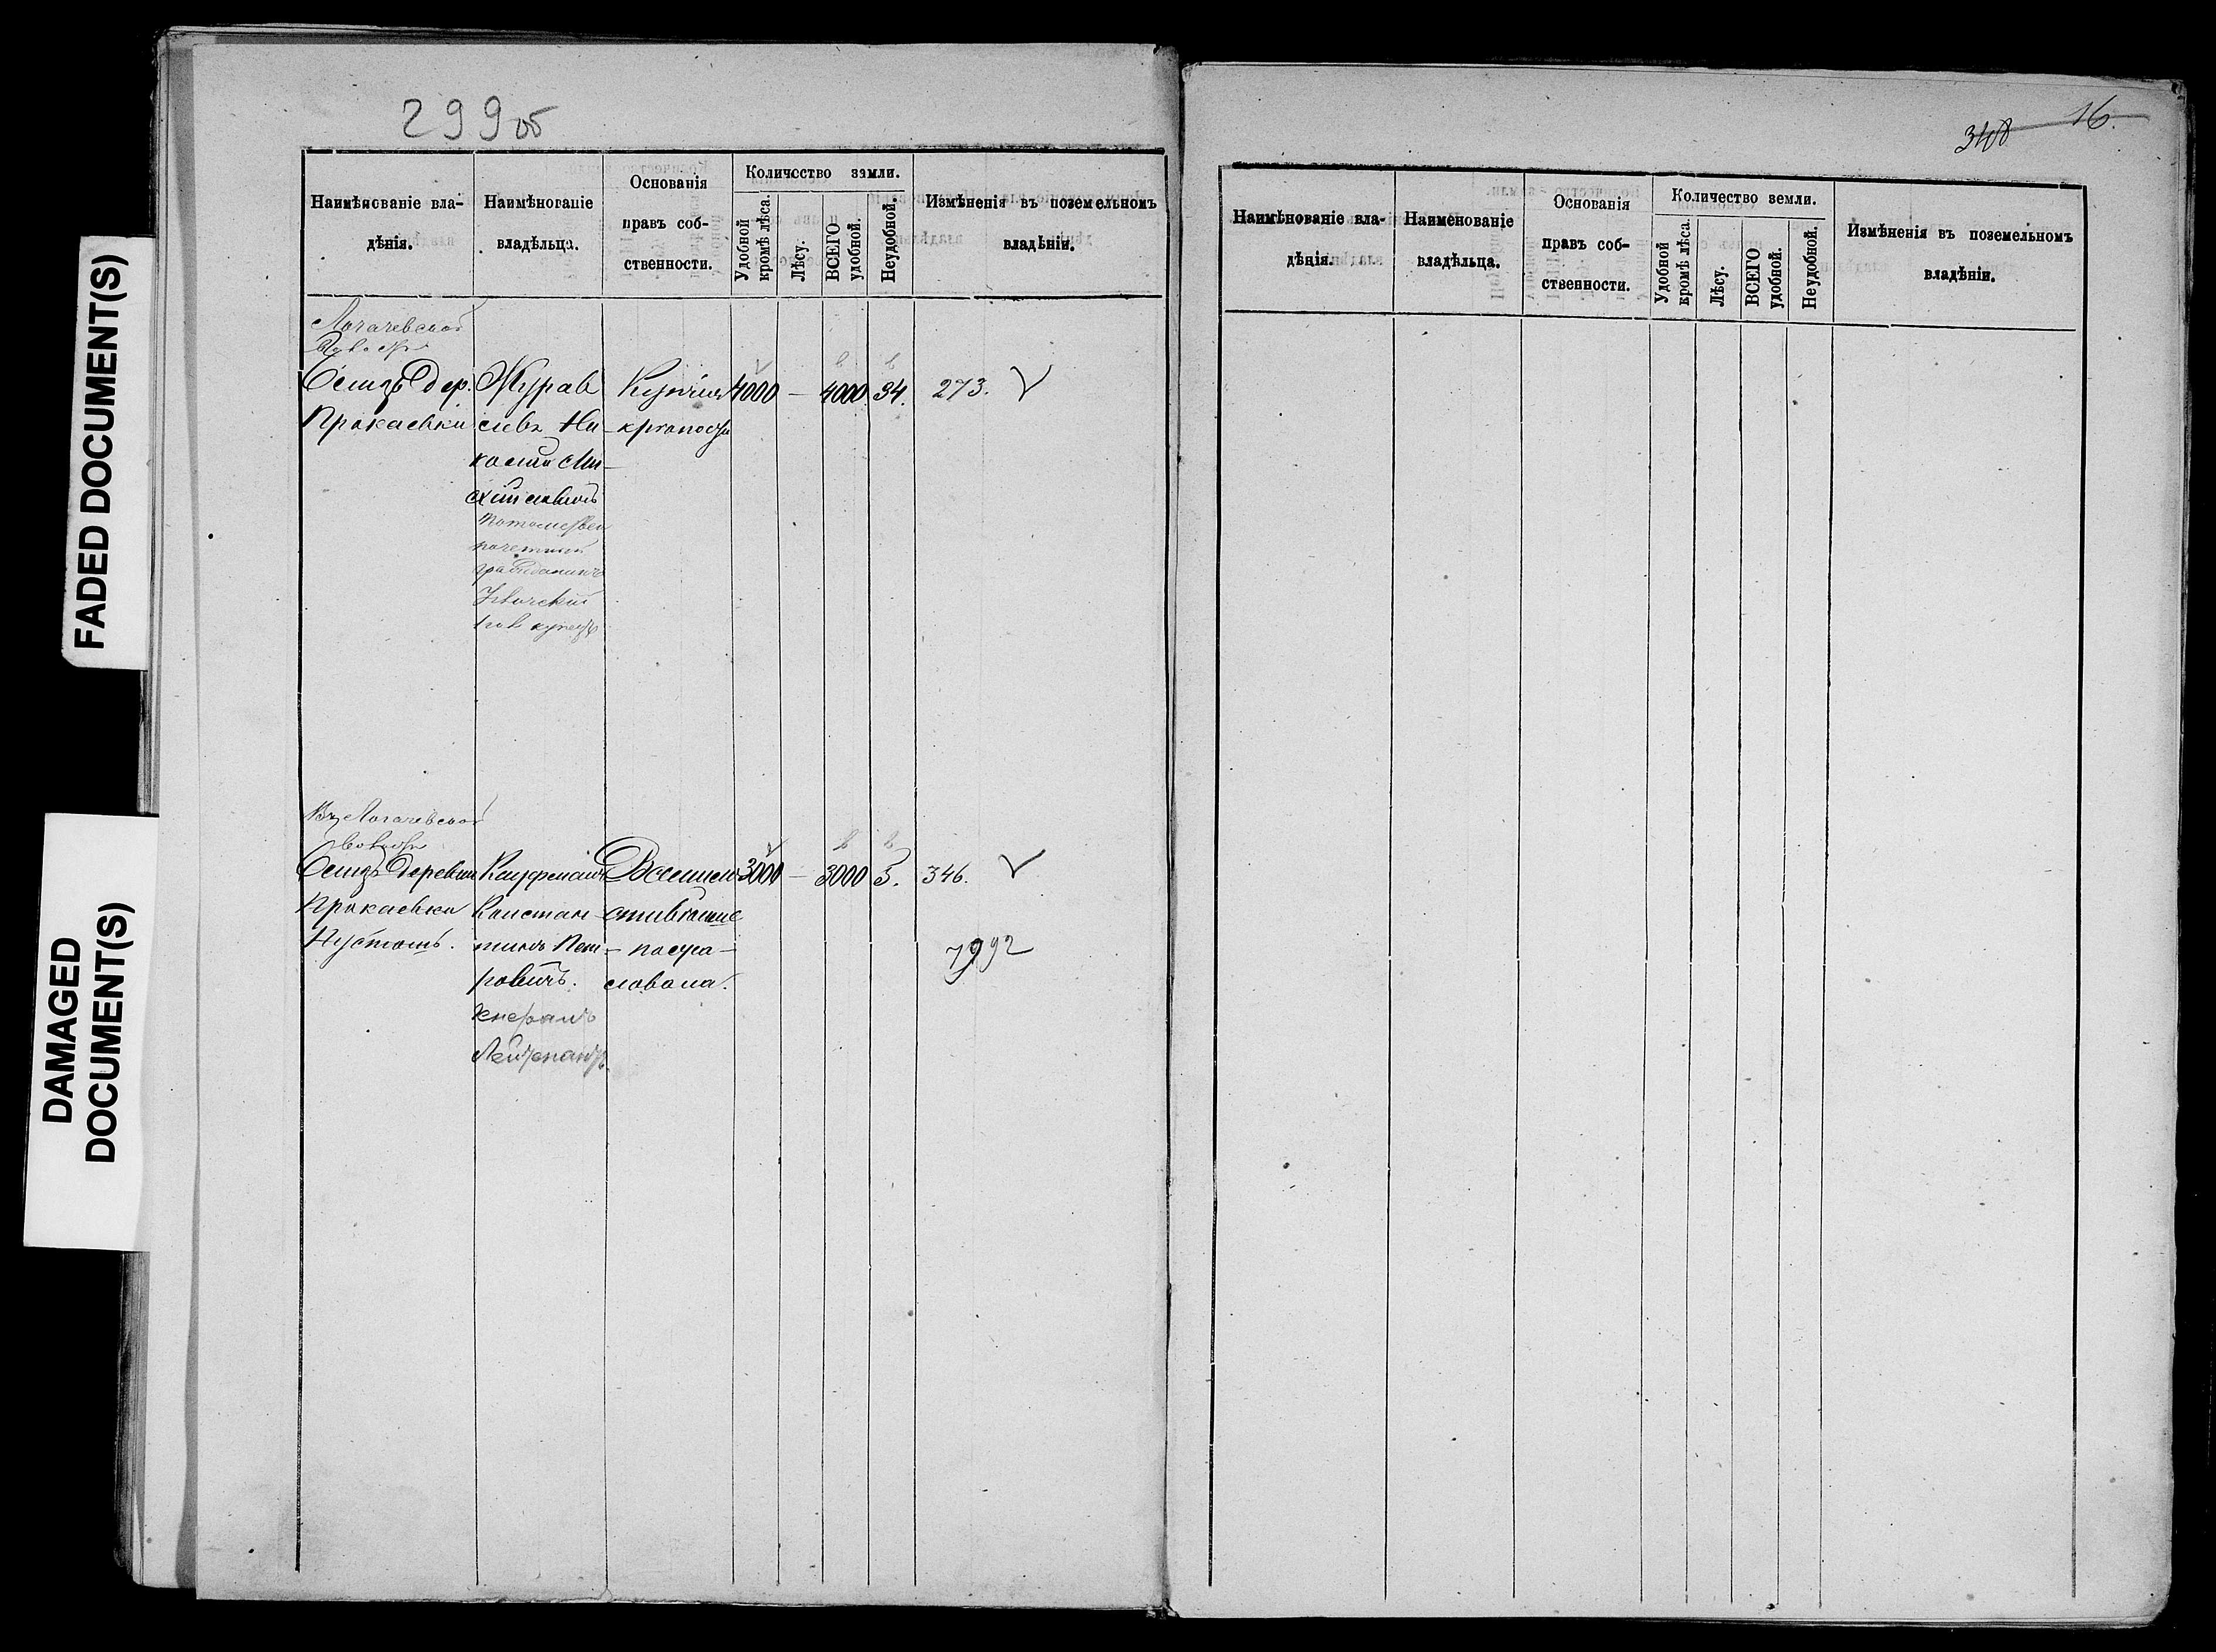 FADED DOCUMENT(S)
DAMAGED
DOCUMENT(S)
299об
Наимѣнованіе вла-
дѣнія.
Наимѣнованіе
владѣльца.
Основанія
правъ соб-
ственности.
Количество земли.
Удобной
кромѣ лѣса.
Лѣсу.
ВСЕГО
удобной.
Неудобной.
Измѣненія въ поземельномъ
владѣніи.
Логачевской
Близъ дер.
Прокаевки
Журав
левъ Ни-
колай Ми-
хайловичъ
потомствен
почетный
гражданинъ
купецъ
Купчая
крѣпость
4000 — 4000 34. 273.
Въ Логачевской
волости
Близъ деревни
Прокаевки
Пустошь.
Кауфманъ
Констан-
тинъ Пет-
ровичъ.
Генералъ
Лейтенантъ.
Всемило-
стивѣйше
пожа-
лована.
3000 — 3000 5. 346.
7992
348 16.
Наимѣнованіе вла-
дѣнія.
Наименованіе
владѣльца.
Основанія
правъ соб-
ственности.
Количество земли.
Удобной
кромѣ лѣса.
Лѣсу.
ВСЕГО
удобной.
Неудобной.
Измѣненія въ поземельномъ
владѣніи.